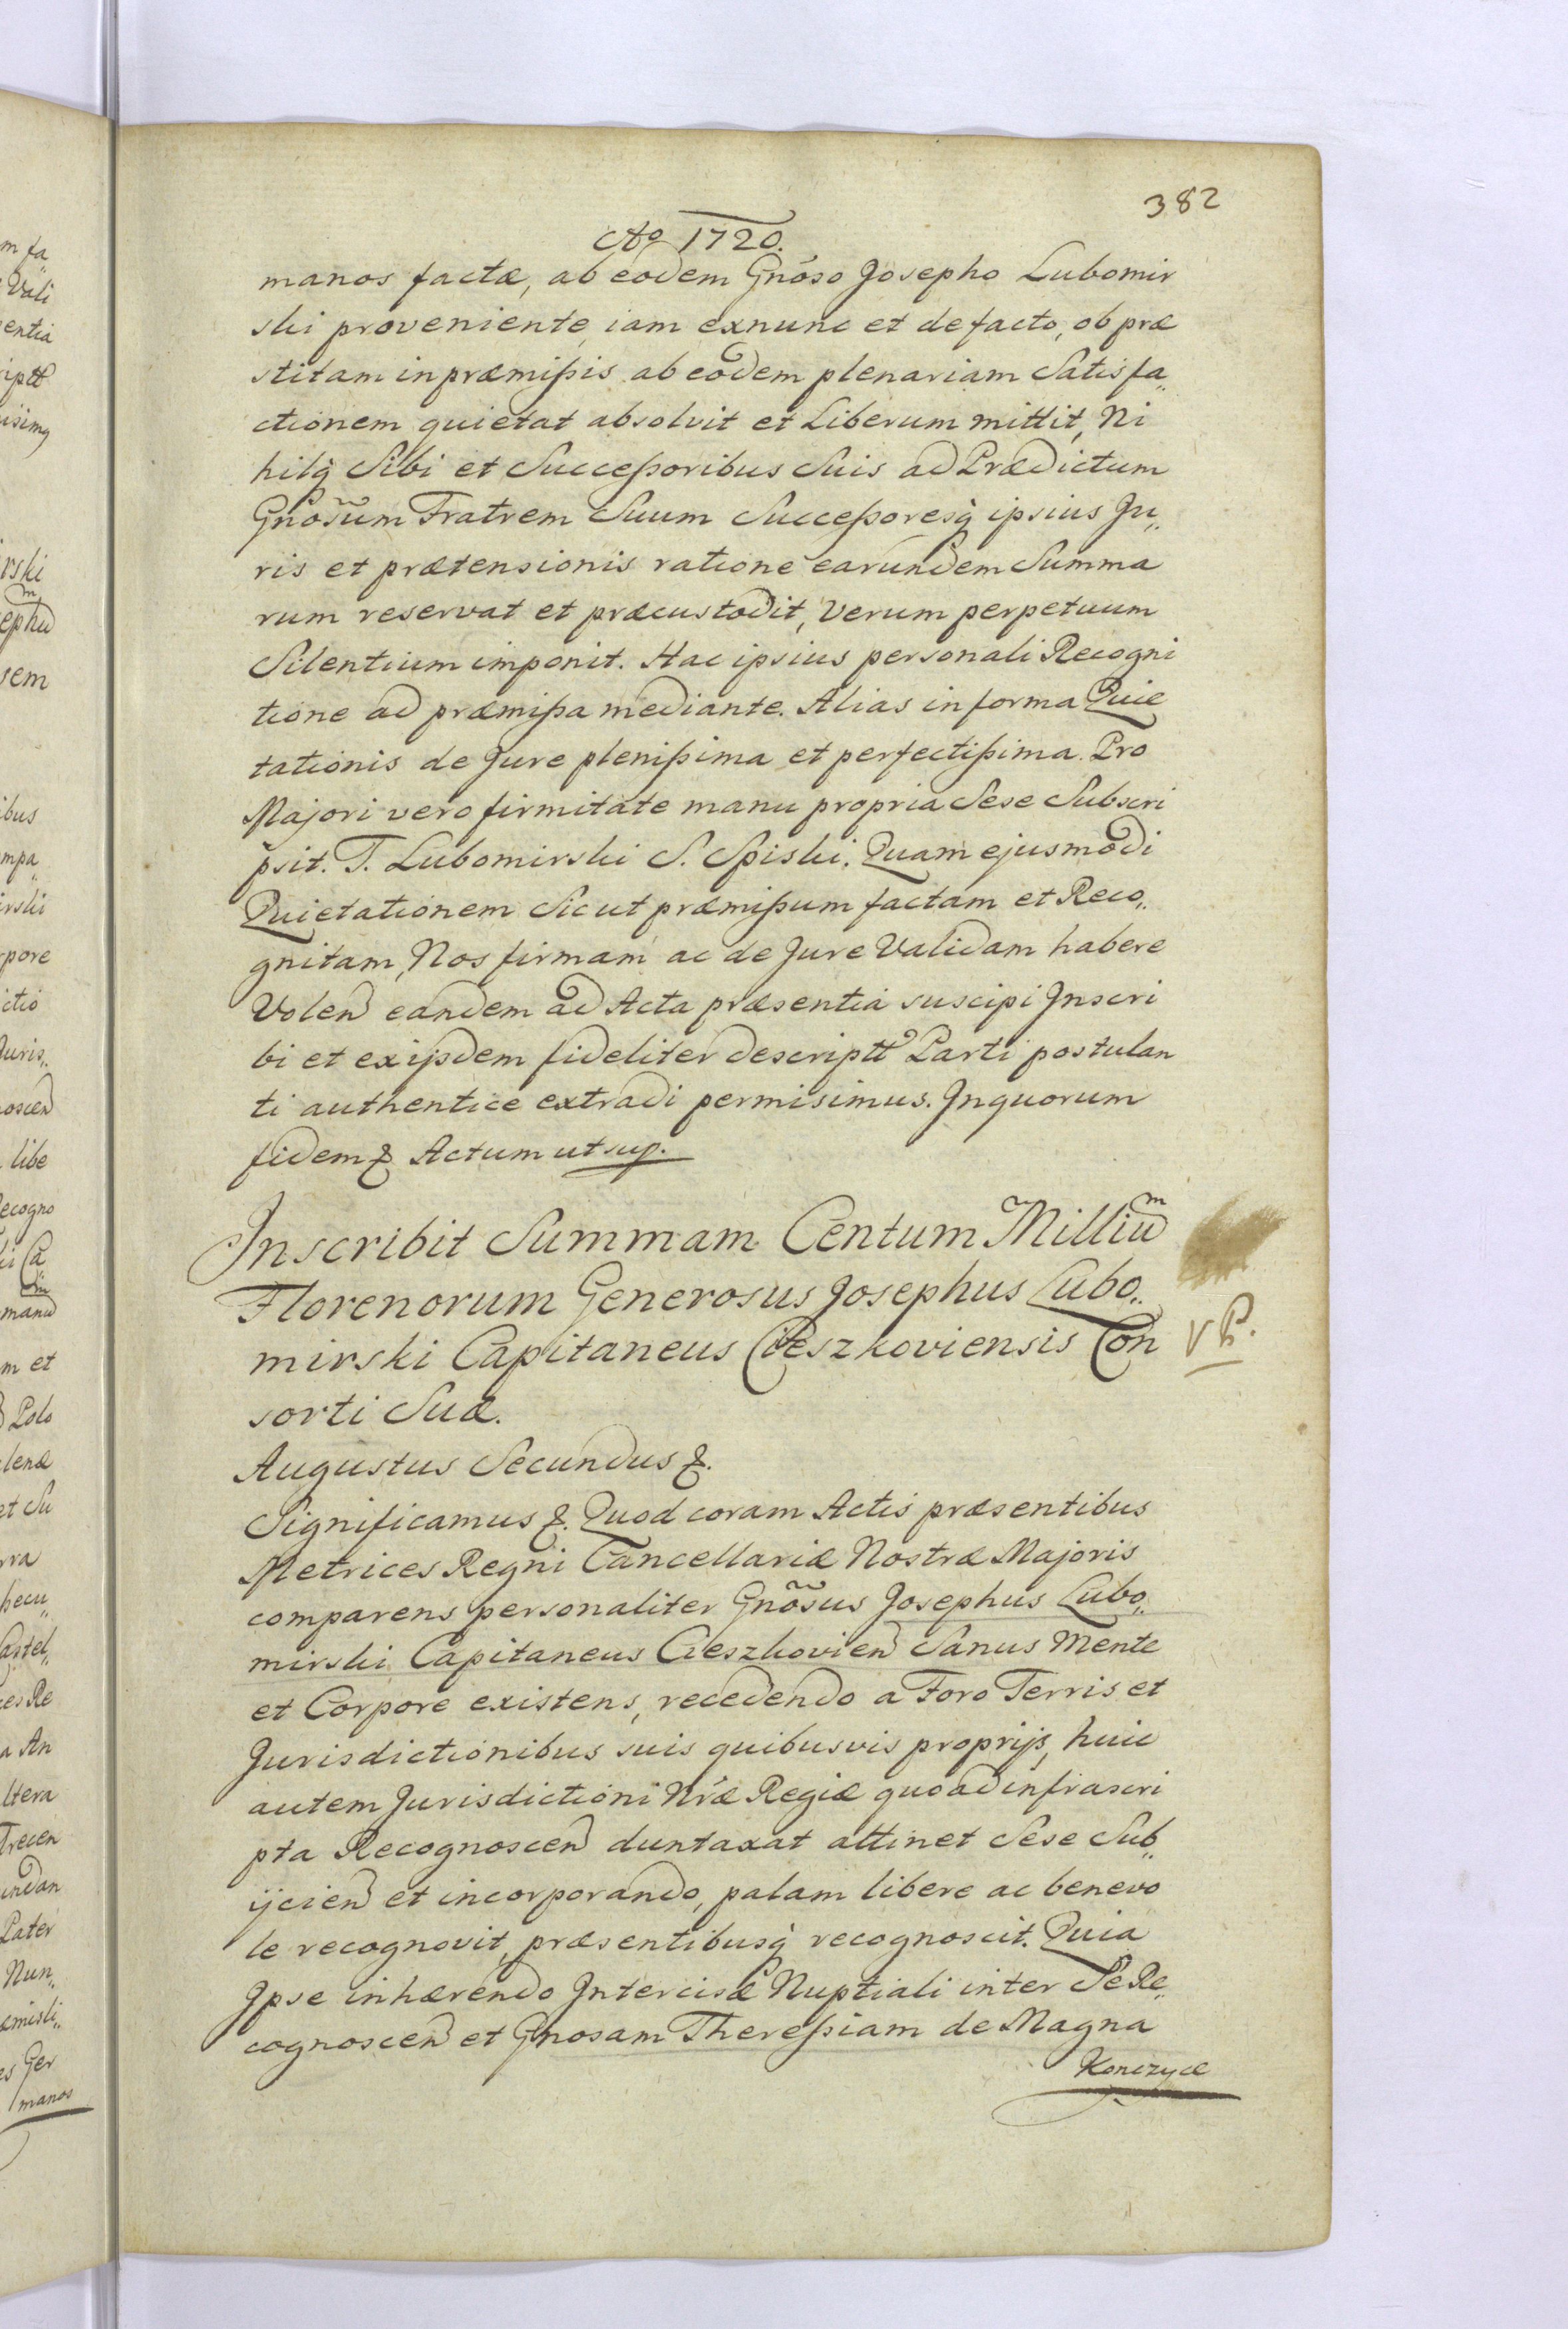 382
Aō 1720.
manos factæ, ab eodem Gnõso Josepho Lubomir
ski proveniente, iam exnunc et defacto, ob præ
stitam in præmißis ab eodem plenariam Satisfa„
ctionem quietat absolvit et Liberum mittit, Ni
hilq̀ Sibi et Succeßoribus Suis ad Prædictum
Gnõsum Fratrem Suum Succeßoresq̀ ipsius Ju„
ris et prætensionis ratione earundem Summa
rum reservat et præcustodit, Verum perpetuum
Silentium imponit. Hac ipsius personali Recogni
tione ad præmißa mediante. Alias in forma Quie
tationis de Jure plenißima et perfectißima. Pro
Majori vero firmitate manu propria Sese Subscri
psit. T. Lubomirski S. Spiski. Quam ejusmodi
Quietationem Sicut præmißum factam et Reco„
gnitam, Nos firmam ac de Jure Validam habere
Volend eandem ad Acta præsentia suscipi Inscri
bi et ex ijsdem fideliter descriptt Parti postulan
ti authentice extradi permisimus. Inquorum
fidem & Actum ut sup.
Inscribit Summam Centum Milliūm
Florenorum Generosus Josephus Lubo„
mirski Capitaneus Cieszkoviensis Con
sorti Suæ.
Augustus Secundus &.
Significamus &. Quod coram Actis præsentibus
Metrices Regni Cancellariæ Nostræ Majoris
comparens personaliter Gnõsus Josephus Lubo„
mirski Capitaneus Cieszkovien Sanus Mente
et Corpore existens, recedendo a Foro Terris et
Jurisdictionibus suis quibusvis proprijs, huic
autem Jurisdictioni Nræ Regiæ quoad infrascri
pta Recognoscen duntaxat attinet Sese Sub„
ijcien et incorporando, palam libere ac benevo
le recognovit, præsentibusq̀ recognoscit. Quia
Ipse inhærendo Intercisæ Nuptiali inter Se Re„
cognoscen et Gnosam Thereßiam de Magna
Konczyce